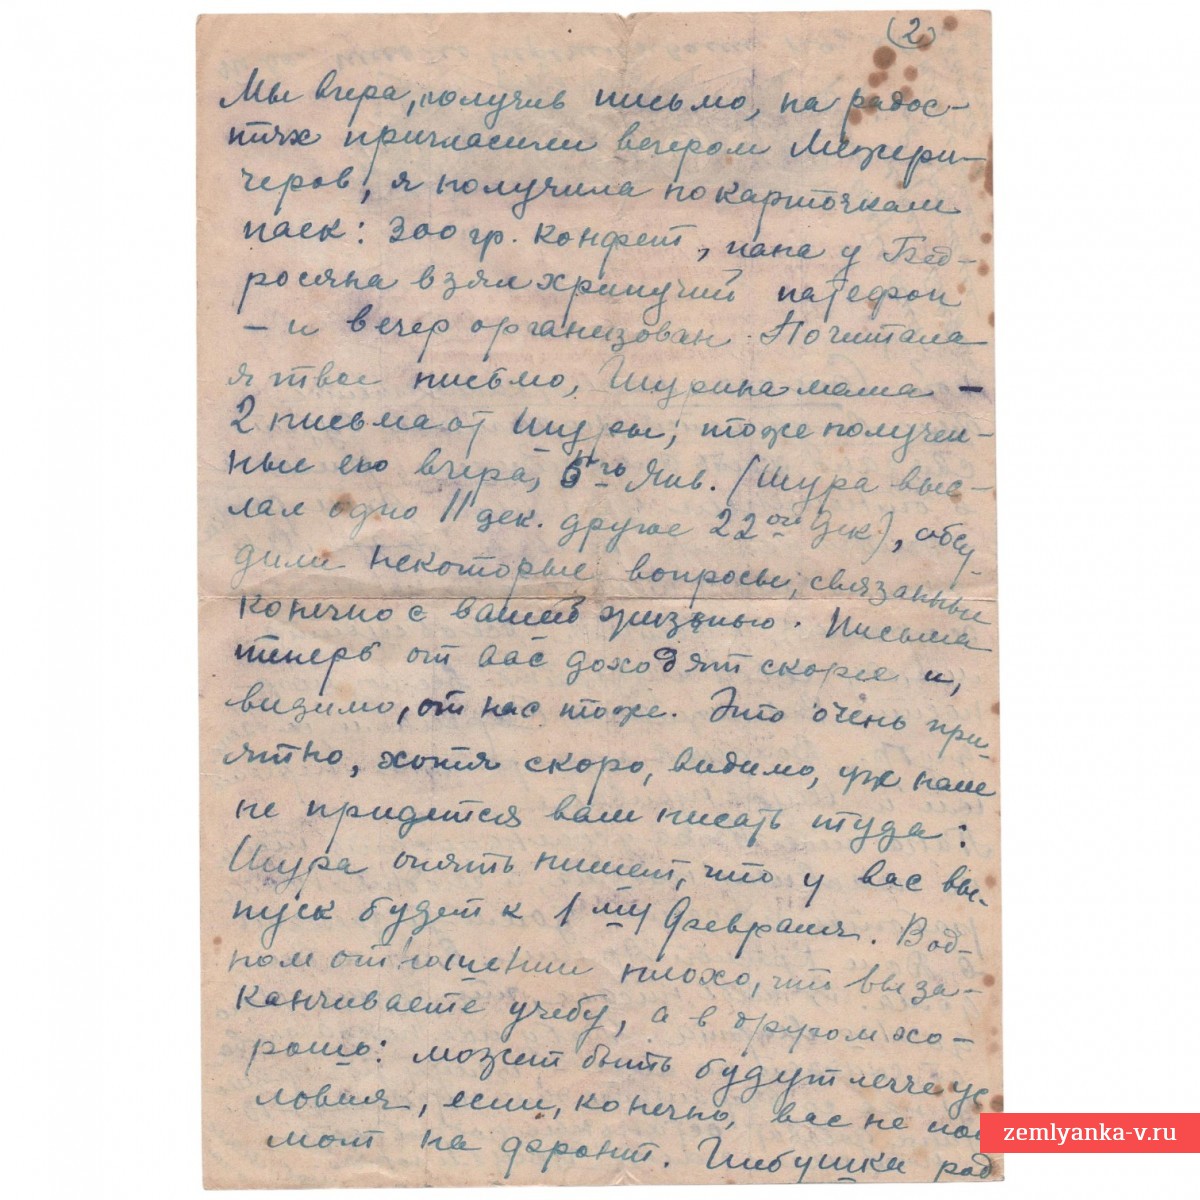 (2)
Мы вчера, получив письмо, на радос-
тях пригласили вечером Межери-
черов, я получила по карточкам
паек: 300 гр. конфет, папа у Бед-
росяна взял хрипучий патефон
– и вечер организован. Почитала
я твое письмо, Шурина мама –
2 письма от Шуры, тоже получен-
ные ею вчера, 5го Янв. (Шура выс-
лал одно 11 дек. другое 22ого Дек), обсу-
дили некоторые вопросы, связанные
конечно с вашей жизнью. Письма
теперь от вас доходят скорее и,
видимо, от нас тоже. Это очень при-
ятно, хотя скоро, видимо, уж нам
не придется вам писать туда:
Шура опять пишет, что у вас вы-
пуск будет к 1му Февраля. В од-
ном отношении плохо, что вы за-
канчиваете учебу, а в другом хо-
рошо: может быть будут легче ус
ловия, если, конечно, вас не
на фронт.
zemlyanka-v.ru